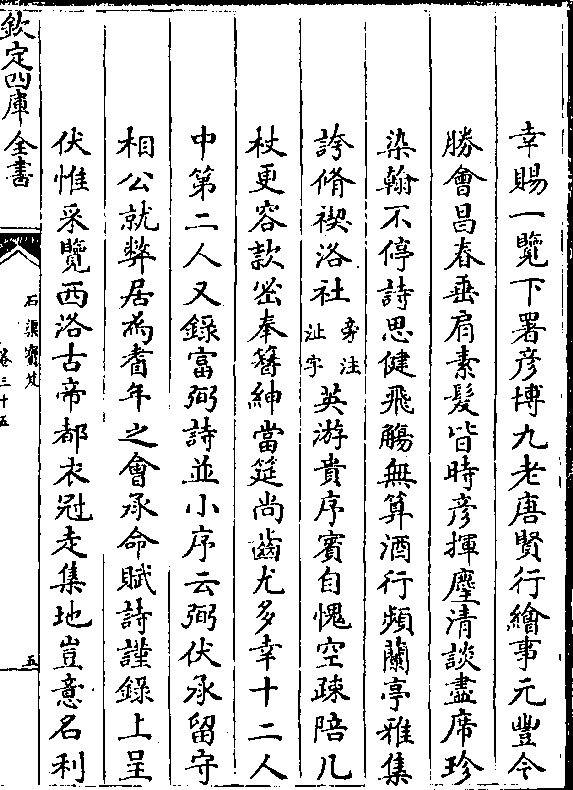 幸賜一覽下署彦博九老唐賢行繪事元豐今
勝會昌春垂肩素髮皆時彦揮麈清談盡席珍
染翰不停詩思健飛觴無算酒行頻蘭亭雅集
誇脩禊洛社旁注沚字英游貴序賓自愧空疎陪几
杖更容款密奉簪紳當筵尚齒尤多幸十二人
中第二人又錄富弼詩並小序云弼伏承留守
相公就弊居為耆年之會承命賦詩謹錄上呈
伏惟采覽西洛古帝都衣冠走集地豈意名利
欽定四庫全書
石渠寶笈
卷三十五
五